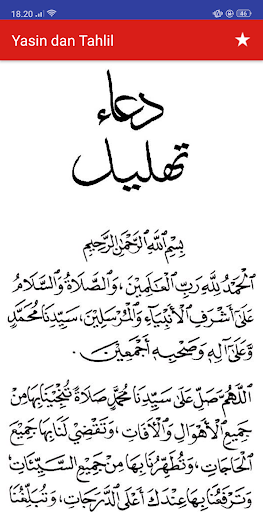 18.20
46
Yasin dan Tahlil
دعاء
تهليل
بِسْمِ اللهِ الرَّحْمٰنِ الرَّحِيْمِ
اَلْحَمْدُ لِلّٰهِ رَبِّ الْعَالَمِيْنَ، وَالصَّلَاةُ وَالسَّلَامُ
عَلَى أَشْرَفِ الْأَنْبِيَاءِ وَالْمُرْسَلِيْنَ، سَيِّدِنَا مُحَمَّدٍ
وَعَلَى آلِهِ وَصَحْبِهِ أَجْمَعِيْنَ.
اَللّٰهُمَّ صَلِّ عَلَى سَيِّدِنَا مُحَمَّدٍ صَلَاةً تُنْجِيْنَا بِهَا مِنْ
جَمِيْعِ الْأَهْوَالِ وَالْآفَاتِ، وَتَقْضِيْ لَنَا بِهَا جَمِيْعَ
الْحَاجَاتِ، وَتُطَهِّرُنَا بِهَا مِنْ جَمِيْعِ السَّيِّئَاتِ
وَتَرْفَعُنَا بِهَا عِنْدَكَ أَعْلَى الدَّرَجَاتِ، وَتُبَلِّغُنَا